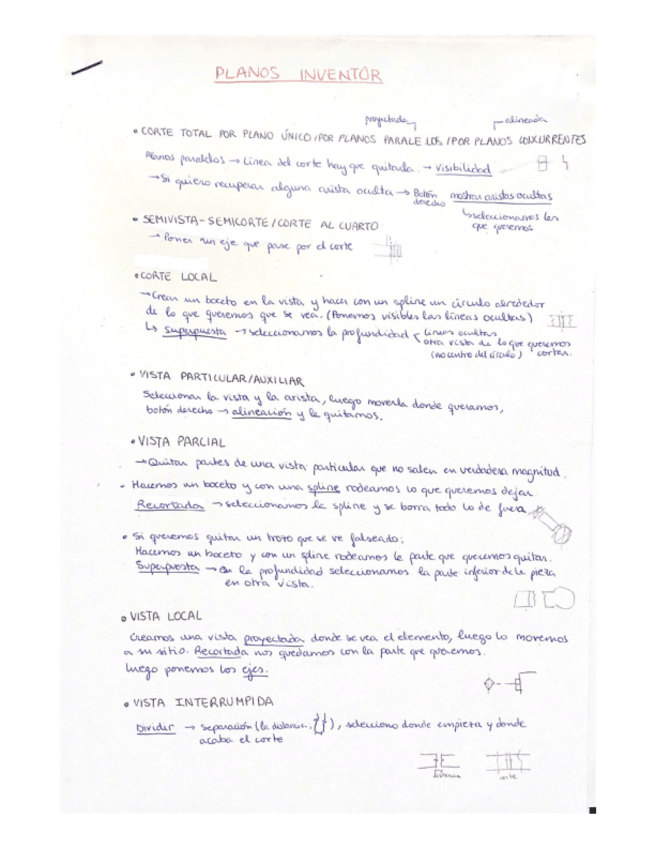 PLANOS INVENTOR
proyectada alineada
• CORTE TOTAL POR PLANO ÚNICO/POR PLANOS PARALELOS/POR PLANOS CONCURRENTES
Planos paralelos → Línea del corte hay que quitarla. → Visibilidad
→ Si quiero recuperar alguna arista oculta → Botón derecho mostrar aristas ocultas
↳ seleccionamos las
que queremos
• SEMIVISTA - SEMICORTE / CORTE AL CUARTO
→ Poner un eje que pase por el corte
• CORTE LOCAL
→ Crear un boceto en la vista y hacer con un spline un círculo alrededor
de lo que queremos que se vea. (Ponemos visibles las líneas ocultas)
↳ Superpuesta → seleccionamos la profundidad líneas ocultas
otra vista de lo que queremos
(no centro del círculo) cortar.
• VISTA PARTICULAR/AUXILIAR
Seleccionar la vista y la arista, luego moverla donde queramos,
botón derecho → alineación y le quitamos.
• VISTA PARCIAL
→ Quitar partes de una vista particular que no salen en verdadera magnitud.
- Hacemos un boceto y con una spline rodeamos lo que queremos dejar.
Recortada → seleccionamos la spline y se borra todo lo de fuera
• Si queremos quitar un trozo que se ve falseado:
Hacemos un boceto y con un spline rodeamos la parte que queremos quitar.
Superpuesta → en la profundidad seleccionamos la parte inferior de la pieza
en otra vista.
• VISTA LOCAL
Creamos una vista proyectada donde se vea el elemento, luego lo movemos
a su sitio. Recortada nos quedamos con la parte que queremos.
luego ponemos los ejes.
• VISTA INTERRUMPIDA
Dividir → separación (la distancia), selecciono donde empieza y donde
acaba el corte